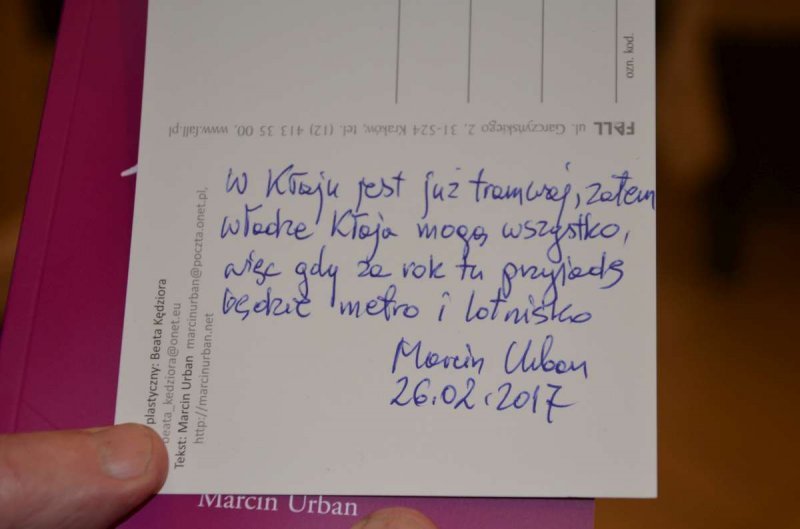 ozn. kod.
FALL ul. Garczyńskiego 2, 31-524 Kraków, tel. (12) 413 35 00, www.fall.pl
W Kłaju jest już tramwaj, zatem
władze Kłaja mogą wszystko,
więc gdy za rok tu przyjadę
będzie metro i lotnisko
Marcin Urban
26.02.2017
plastyczny: Beata Kędziora
beata_kedziora@onet.eu
Tekst: Marcin Urban marcinurban@poczta.onet.pl,
http://marcinurban.net
Marcin Urban